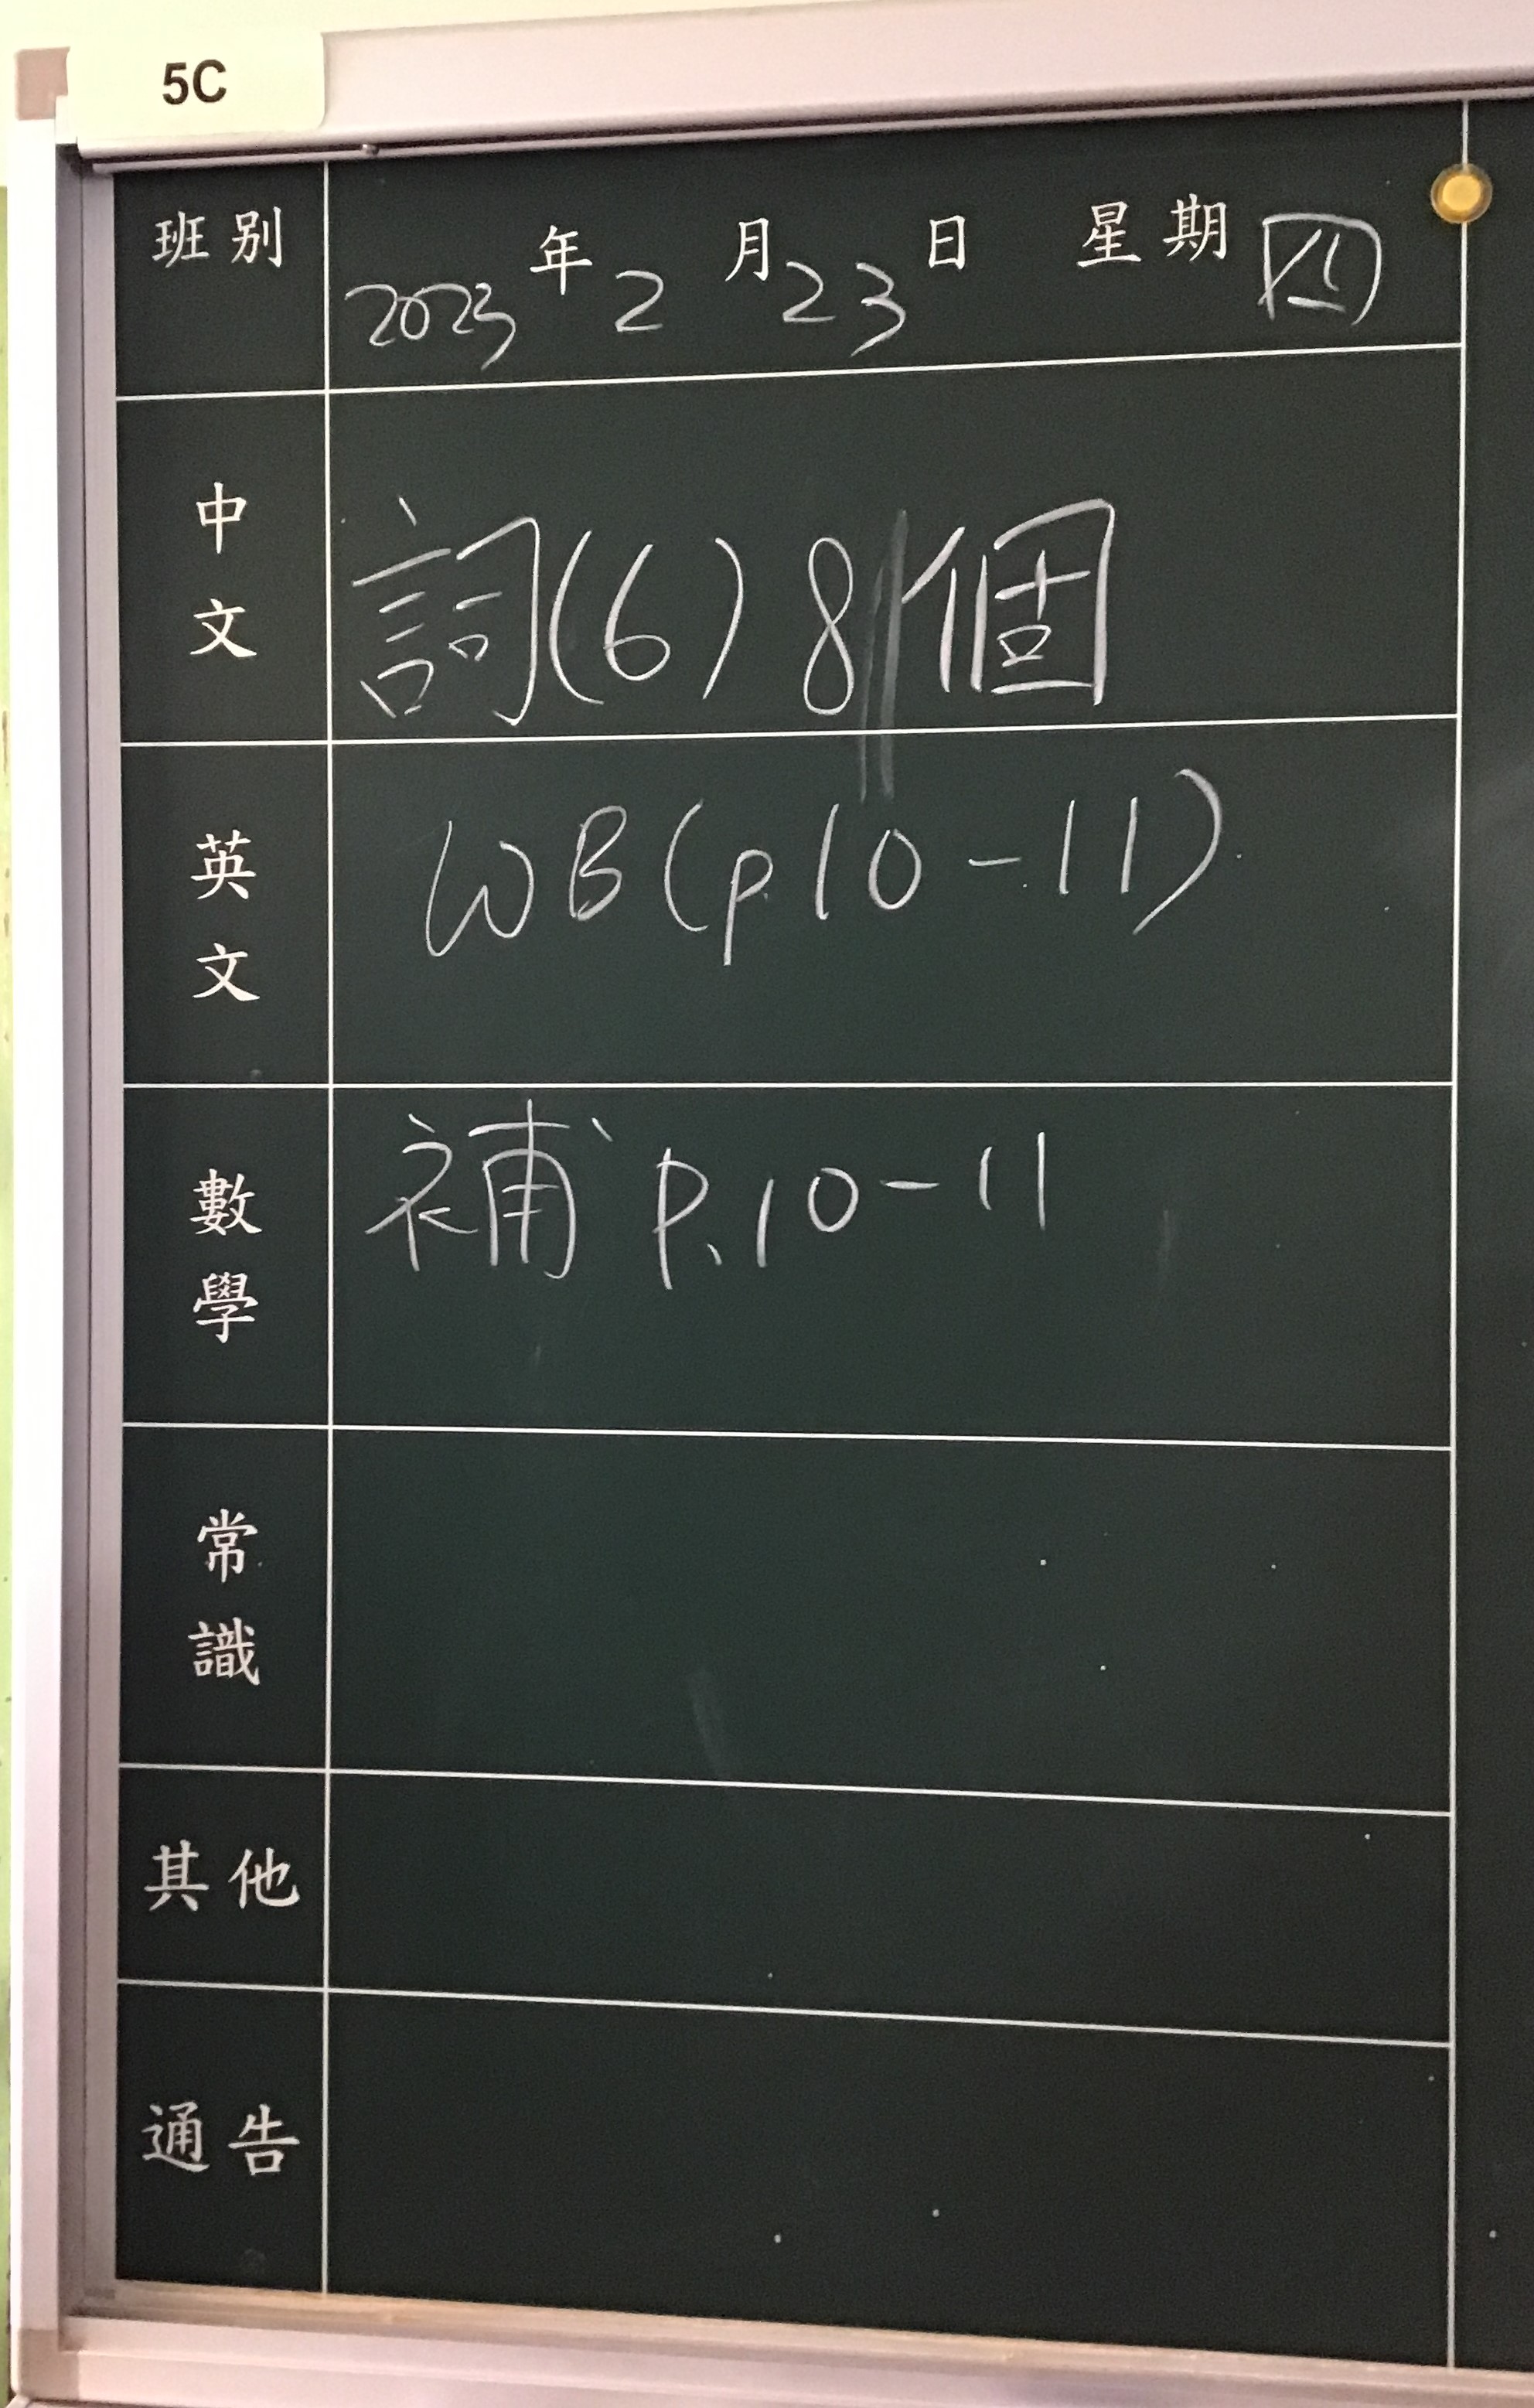 5C
班別 2023年2月23日 星期四
中文 詞(6) 8個
英文 WB(p.10-11)
數學 補 P.10-11
常識
其他
通告